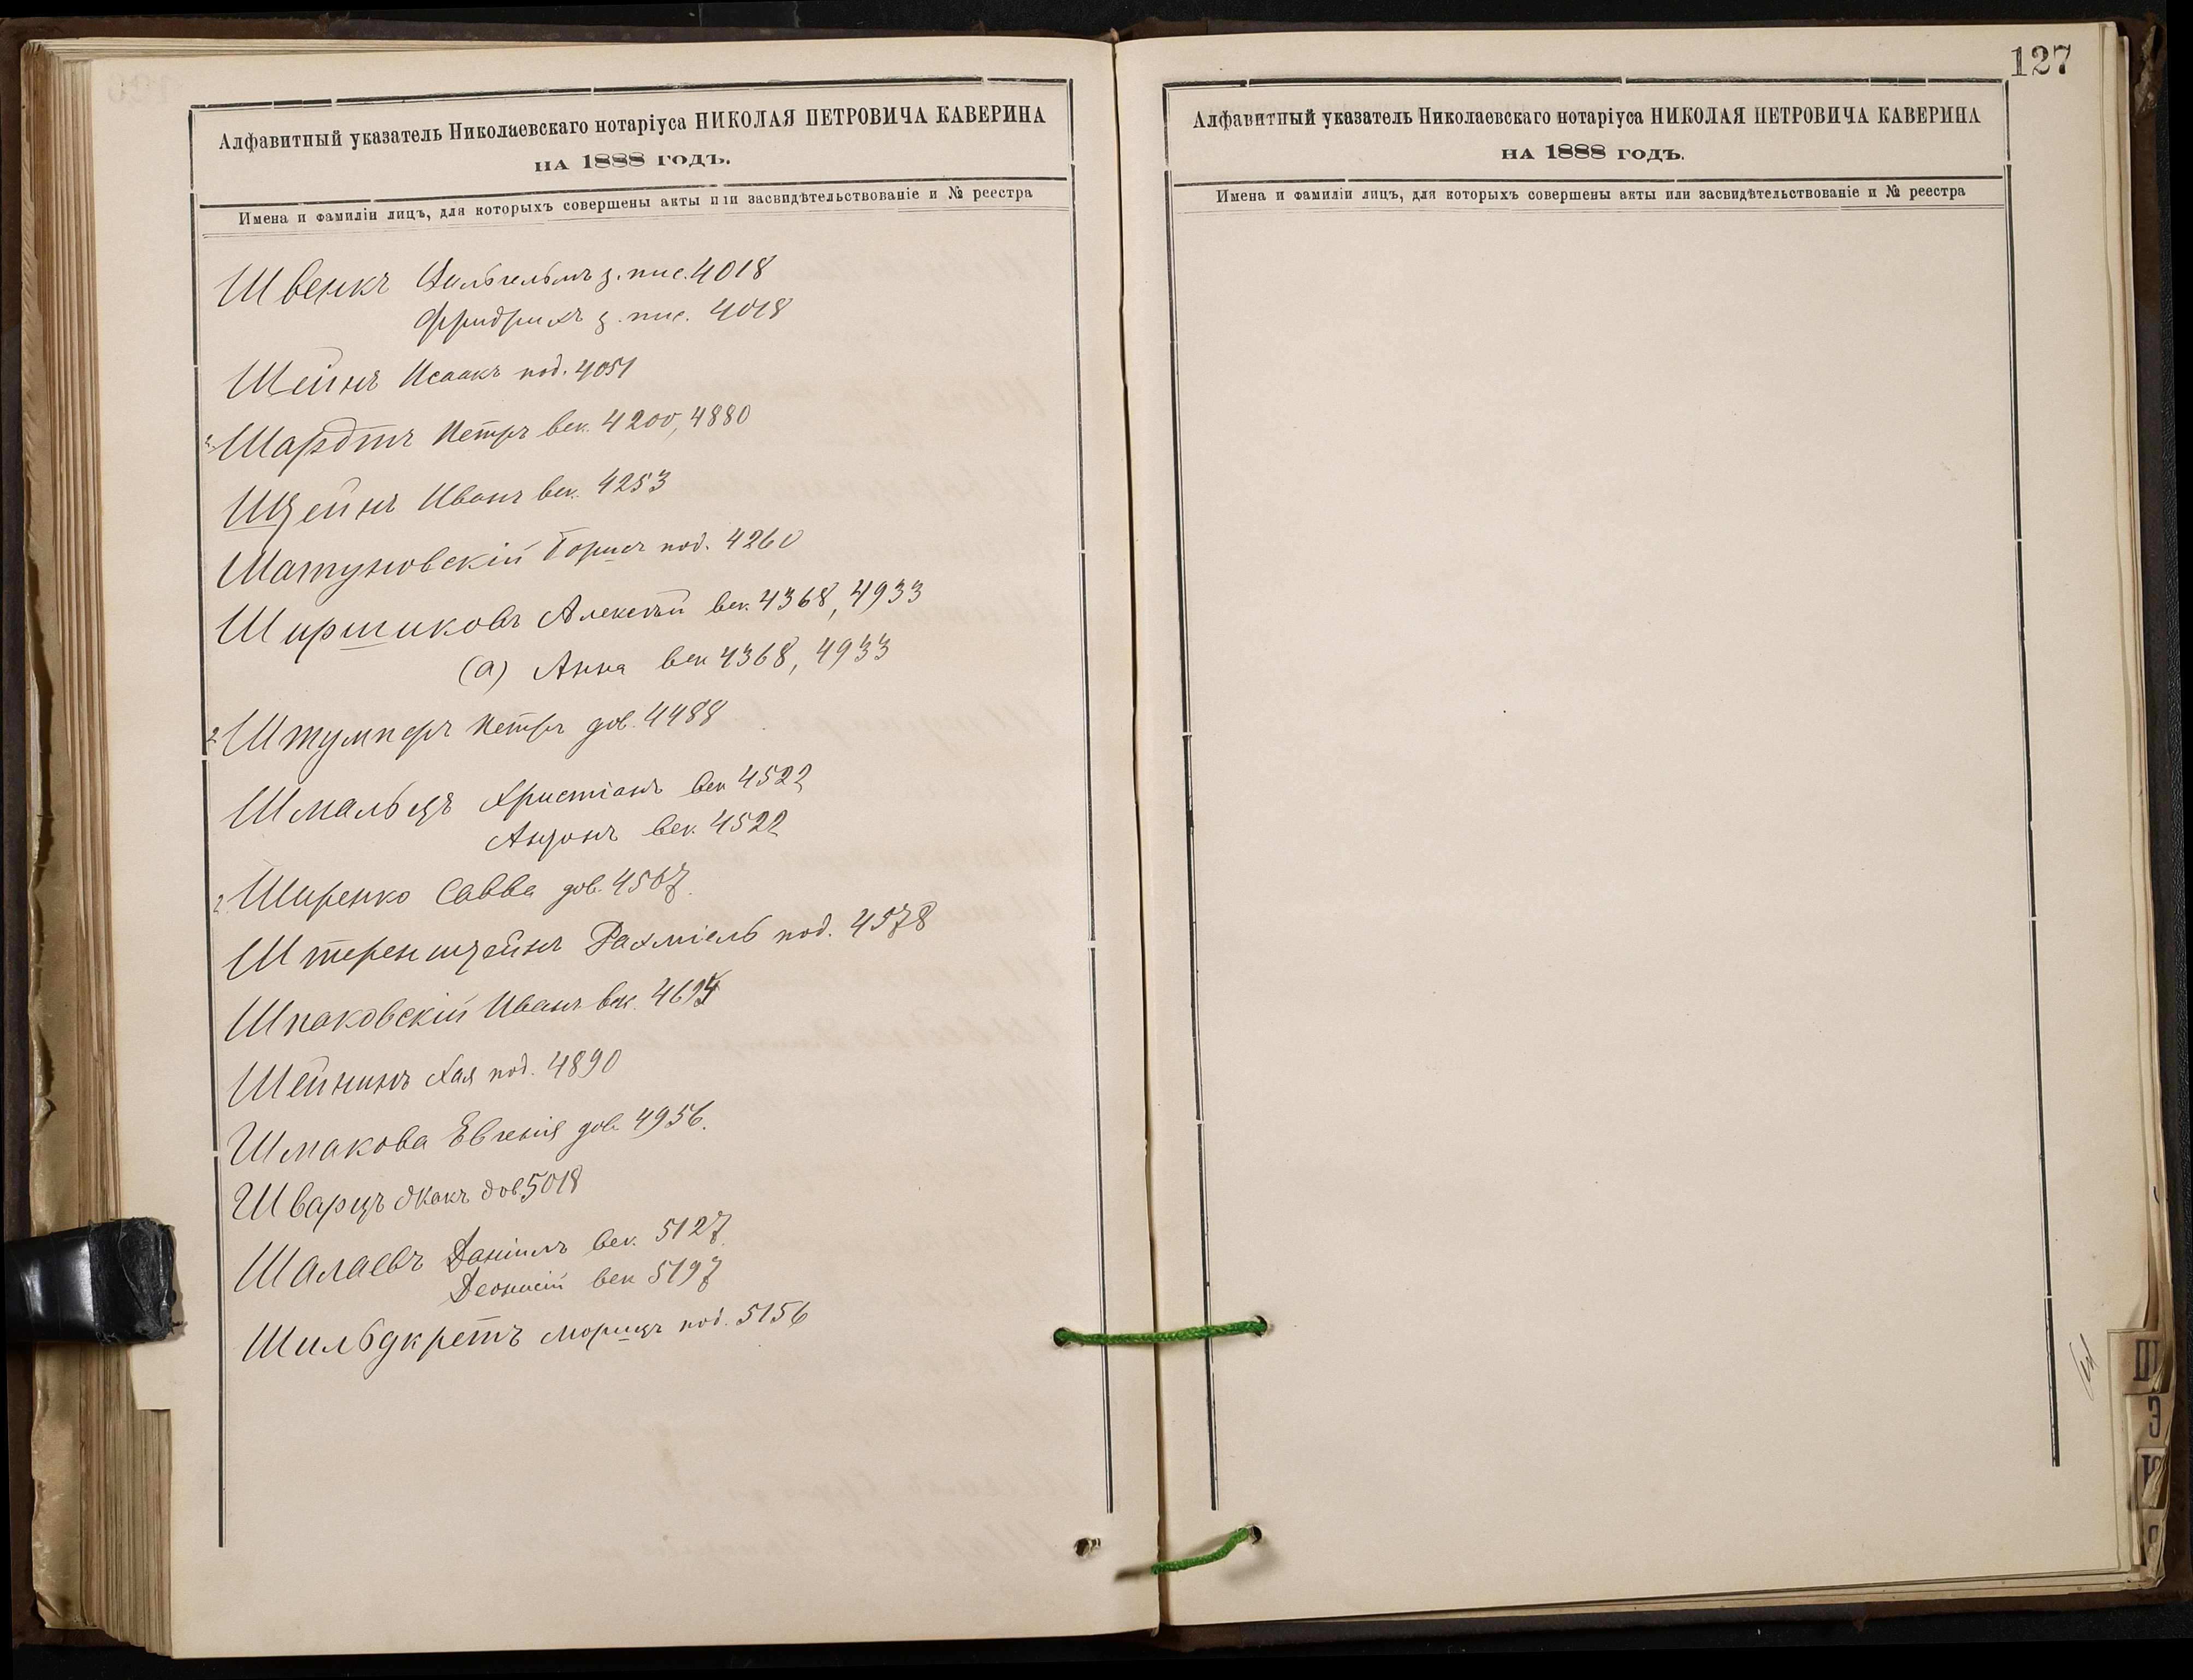 Алфавитный указатель Николаевскаго нотаріуса НИКОЛАЯ ПЕТРОВИЧА КАВЕРИНА
НА 1888 ГОДЪ.
Имена и фамиліи лицъ, для которыхъ совершены акты или засвидѣтельствованіе и № реестра
Швенкъ Вильгельмъ з. пис. 4018
Фридрихъ з. пис. 4018
Шейнъ Исаакъ под. 4051
Шардтъ Петръ век. 4200, 4880
Штейнъ Иванъ век. 4253
Матуновскій Борисъ под. 4260
Ширшиковъ Алексѣй век. 4368, 4933
(а) Анна век 4368, 4933
2 Штумперъ Петръ дов. 4488
Шмальцъ Христіанъ век 4522
Антонъ век. 4522
Ширенко Савва дов. 4567.
Штеренштейнъ Рахміель под. 4578
Шпаковскій Иванъ век.
Шейнинъ Хая под. 4890
Шмакова Евгенія дов. 4956.
Шварцъ дов 5018
Шалаевъ Даніилъ век. 5127
Деонисій век 5197
Шильдкретъ Морицъ под. 5156
127
Алфавитный указатель Николаевскаго нотаріуса НИКОЛАЯ ПЕТРОВИЧА КАВЕРИНА
НА 1888 ГОДЪ.
Имена и фамиліи лицъ, для которыхъ совершены акты или засвидѣтельствованіе и № реестра
Ш
Э
Ю